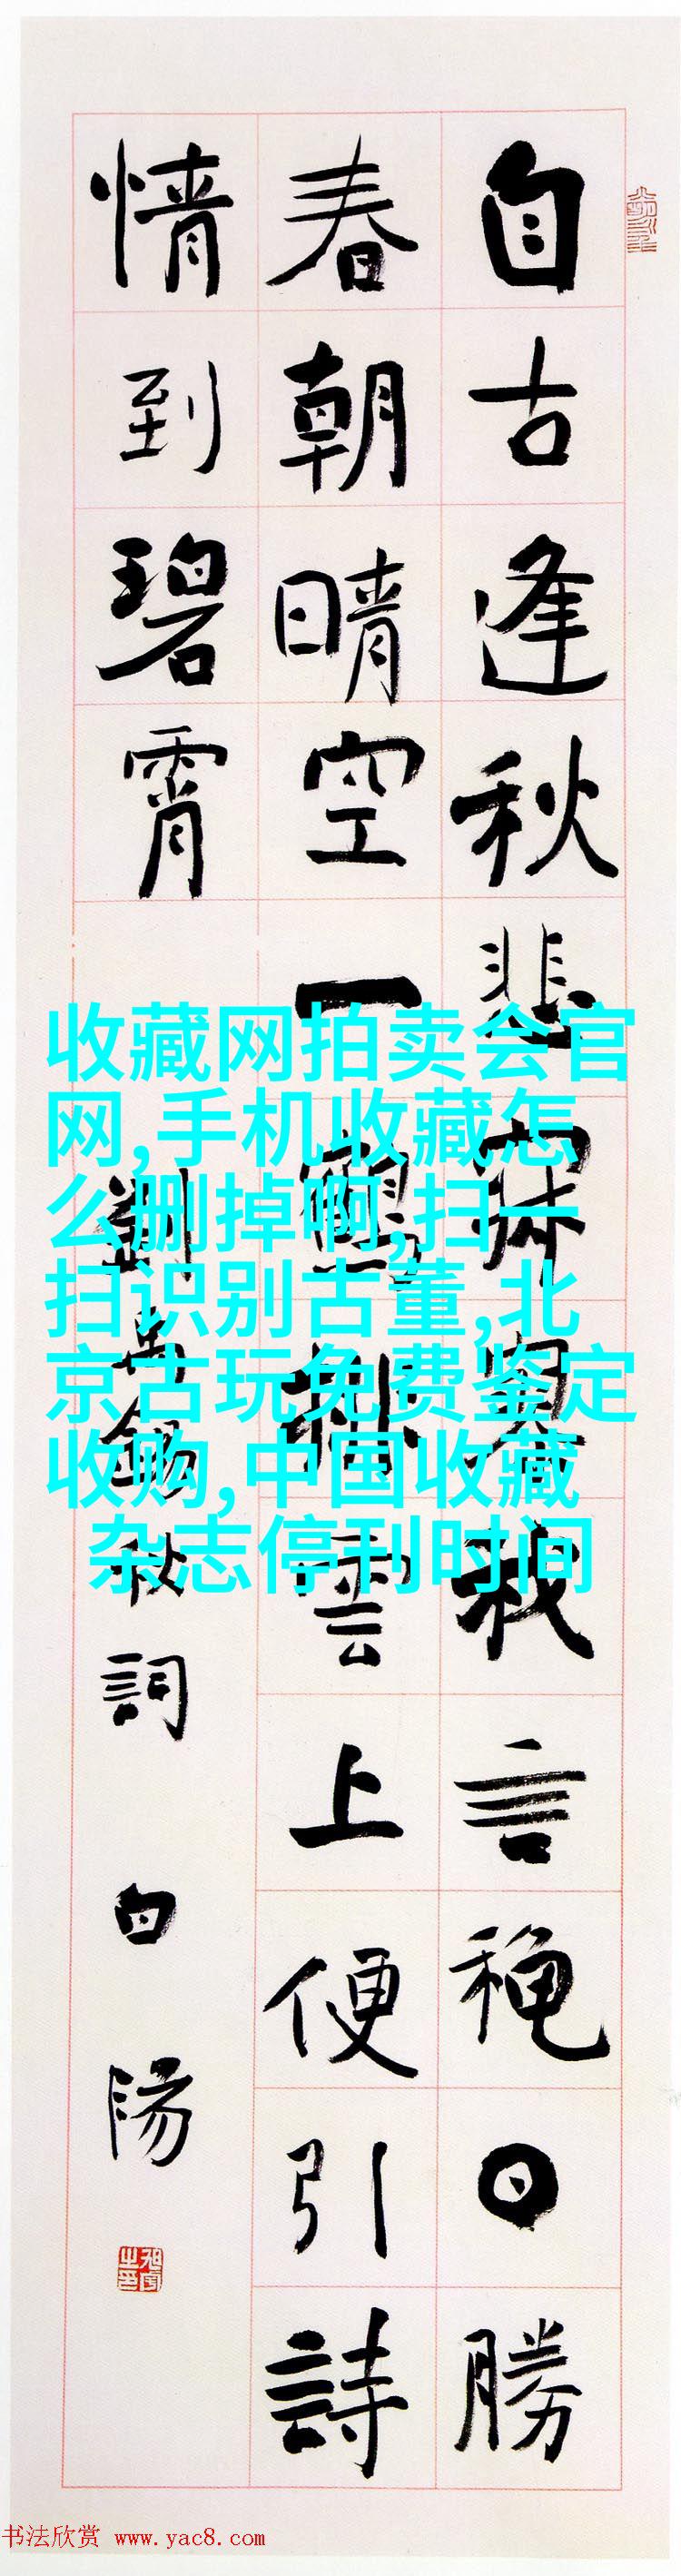 自古逢秋悲寂寞我言秋日勝
春朝晴空一鶴排雲上便引詩
情到碧霄
劉禹錫秋詞
白陽
收藏网拍卖会官
网,手机收藏怎
么删掉啊,扫一
扫识别古董,北
京古玩免费鉴定
收购,中国收藏
杂志停刊时间
书法欣赏 www.yac8.com